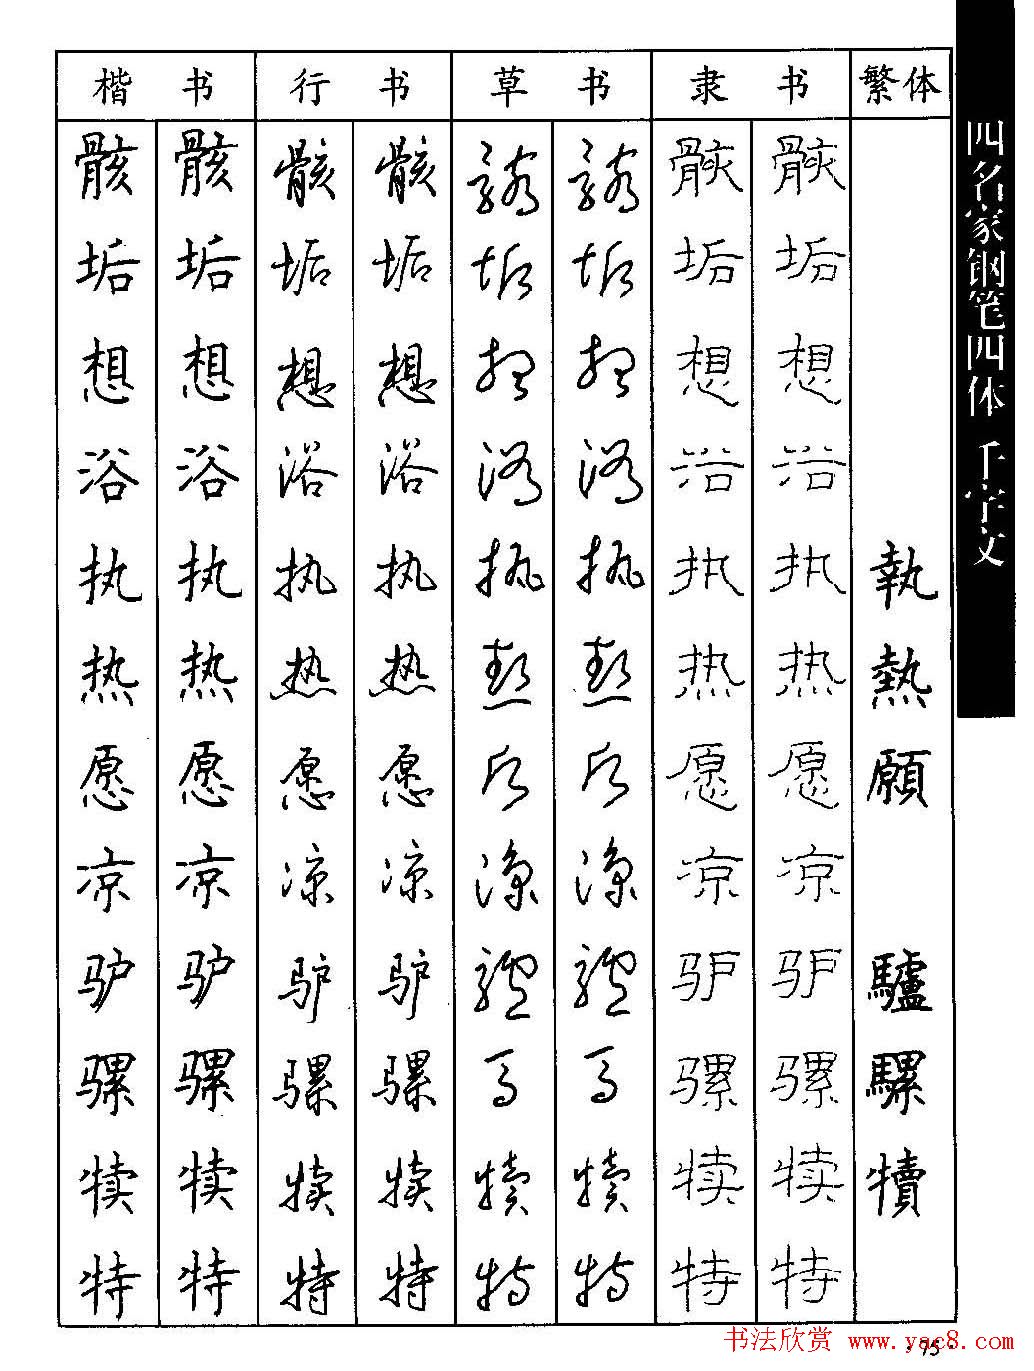 楷书 行书 草书 隶书 繁体
骸 骸 骸 骸 骸 骸 骸 骸
垢 垢 垢 垢 垢 垢 垢 垢
想 想 想 想 想 想 想 想
浴 浴 浴 浴 浴 浴 浴 浴
执 执 执 执 执 执 执 执 執
热 热 热 热 热 热 热 热 熱
愿 愿 愿 愿 愿 愿 愿 愿 願
凉 凉 凉 凉 凉 凉 凉 凉
驴 驴 驴 驴 驴 驴 驴 驴 驢
骡 骡 骡 骡 骡 骡 骡 骡 騾
犊 犊 犊 犊 犊 犊 犊 犊 犢
特 特 特 特 特 特 特 特
四名家钢笔四体 千字文
书法欣赏 www.yac8.com
·75·